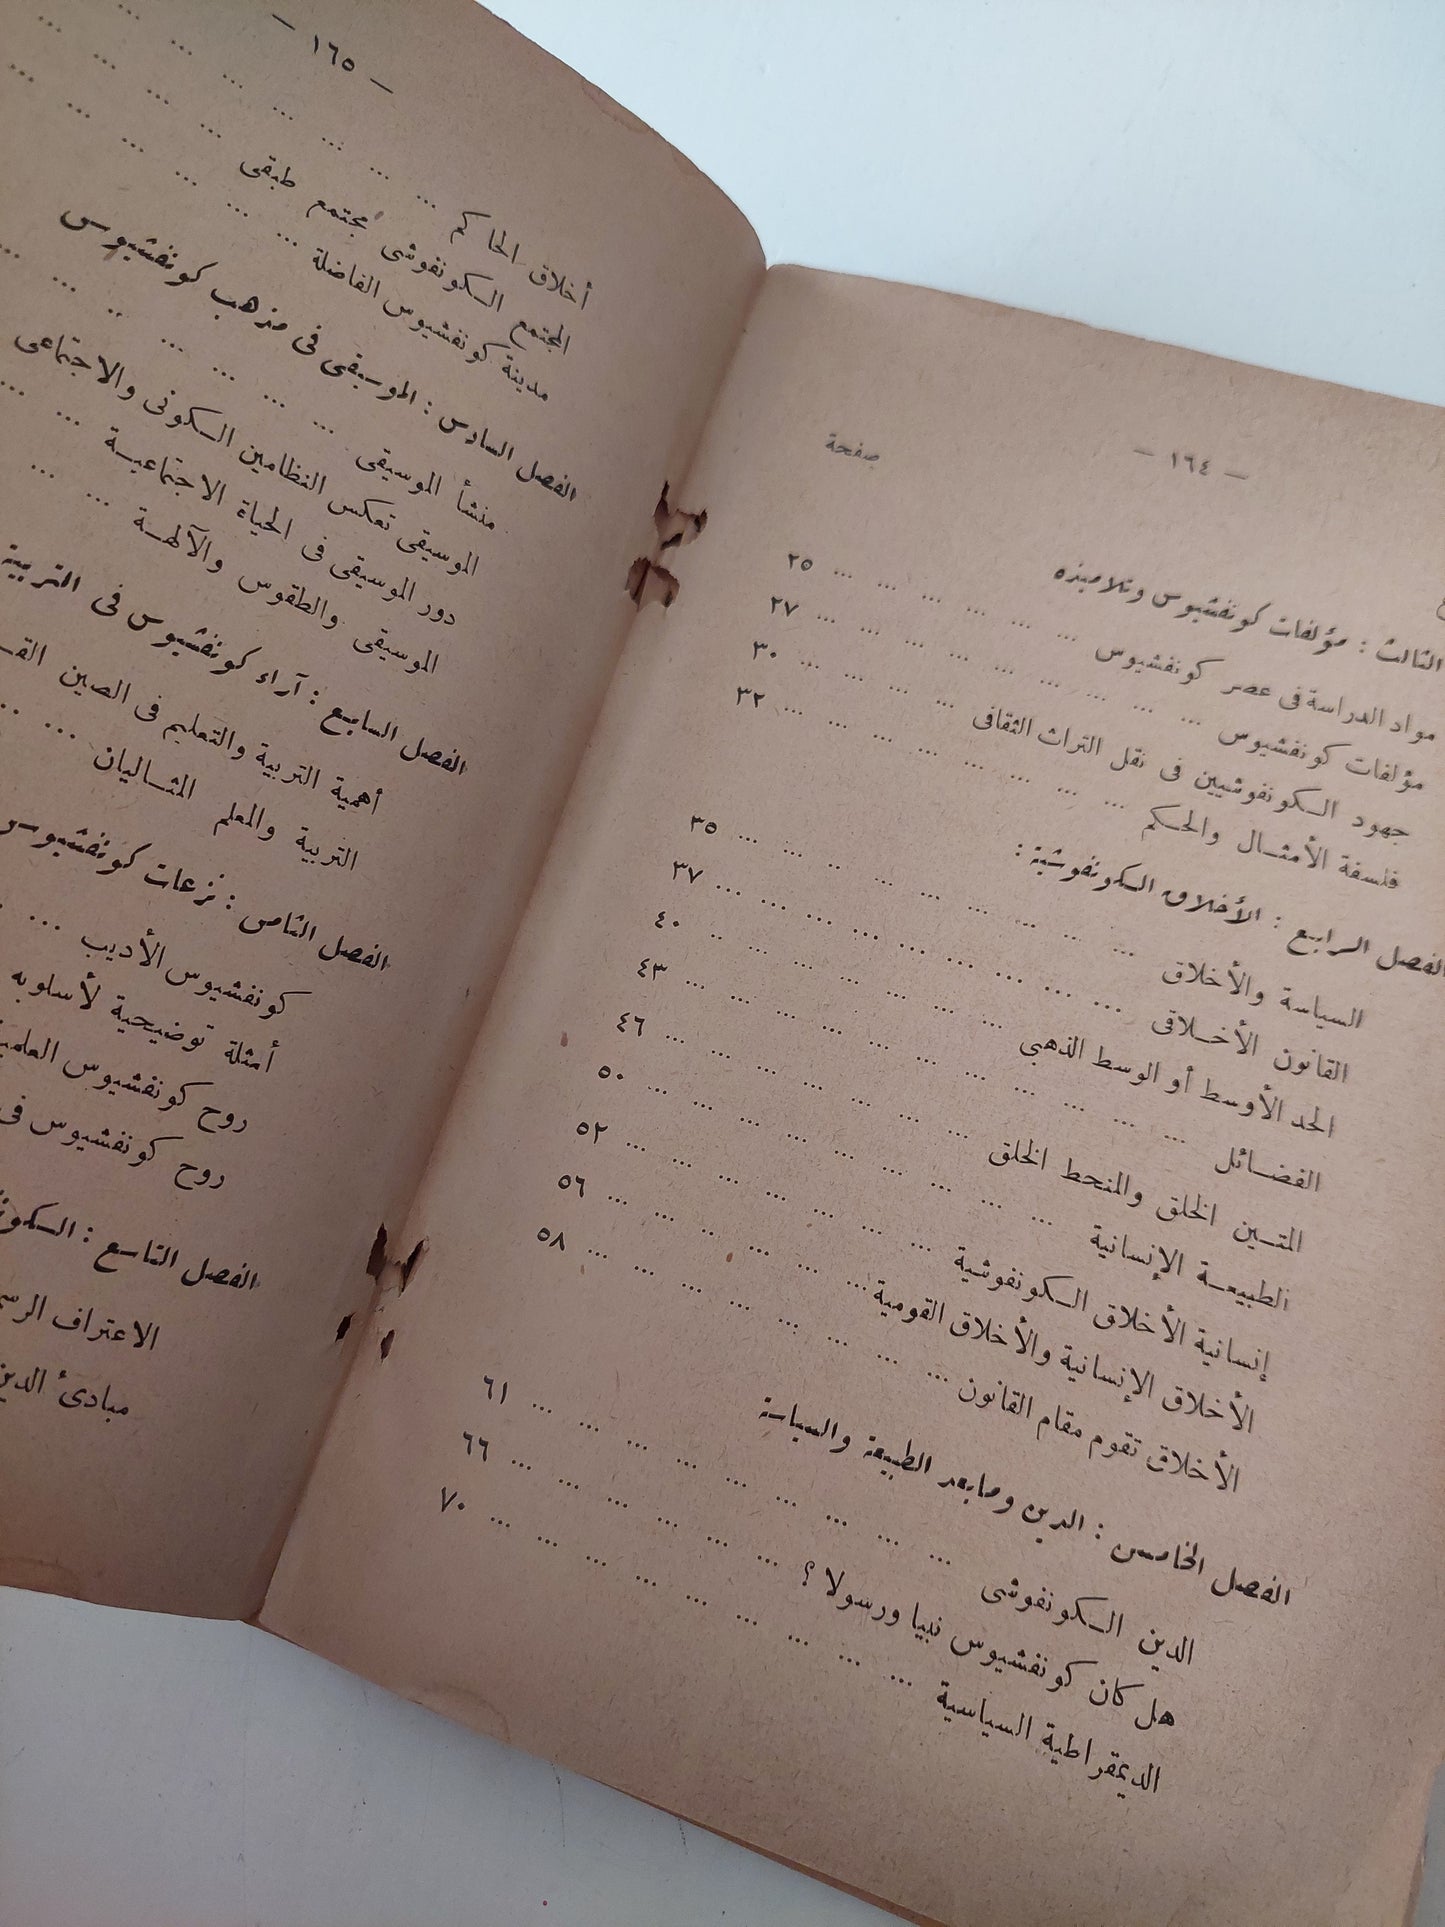 — ١٦٤ —
صفحة
الثالث : مؤلفات كونفشيوس وتلاميذه
مواد الدراسة فى عصر كونفشيوس ... ... ... ... ... ... ٢٥
مؤلفات كونفشيوس ... ... ... ... ... ... ... ... ... ٢٧
جهود الكونفوشيين فى نقل التراث الثقافى ... ... ... ... ٣٠
فلسفة الأمثال والحكم ... ... ... ... ... ... ... ... ٣٢
الفصل الرابع : الأخلاق الكونفوشية :
السياسة والأخلاق ... ... ... ... ... ... ... ... ... ٣٥
القانون الأخلاقى ... ... ... ... ... ... ... ... ... ٣٧
الحد الأوسط أو الوسط الذهبى ... ... ... ... ... ... .. ٤٠
الفضائل ... ... ... ... ... ... ... ... ... ... ... ٤٣
المتين الخلق والمنحط الخلق ... ... ... ... ... ... ... ٤٦
الطبيعة الإنسانية ... ... ... ... ... ... ... ... ... ٥٠
إنسانية الأخلاق الكونفوشية ... ... ... ... ... ... ... ٥٢
الأخلاق الإنسانية والأخلاق القومية ... ... ... ... ... ... ٥٦
الأخلاق تقوم مقام القانون ... ... ... ... ... ... ... ... ٥٨
الفصل الخامس : الدين وما بعد الطبيعة والسياسة
الدين الكونفوشى ... ... ... ... ... ... ... ... ... ٦١
هل كان كونفشيوس نبيا ورسولا ؟ ... ... ... ... ... ... ٦٦
الديمقراطية السياسية ... ... ... ... ... ... ... ... ... ٧٠
— ١٦٥ —
أخلاق الحاكم ... ... ... ... ... ... ...
المجتمع الكونفوشى مجتمع طبقى ... ... ... ...
مدينة كونفشيوس الفاضلة ... ... ... ... ... ...
الفصل السادس : الموسيقى فى مذهب كونفشيوس
منشأ الموسيقى ... ... ... ... .. ... ...
الموسيقى تعكس النظامين الكونى والاجتماعى
دور الموسيقى فى الحياة الاجتماعية ... ... ...
الموسيقى والطقوس والآلهة ... ... ...
الفصل السابع : آراء كونفشيوس فى التربية
أهمية التربية والتعليم فى الصين
التربية والمعلم المثاليان ... ... ...
الفصل الثامن : نزعات كونفشيوس
كونفشيوس الأديب ... ...
أمثلة توضيحية لأسلوبه
روح كونفشيوس
روح كونفشيوس فى
الفصل التاسع :
الاعتراف
مبادئ